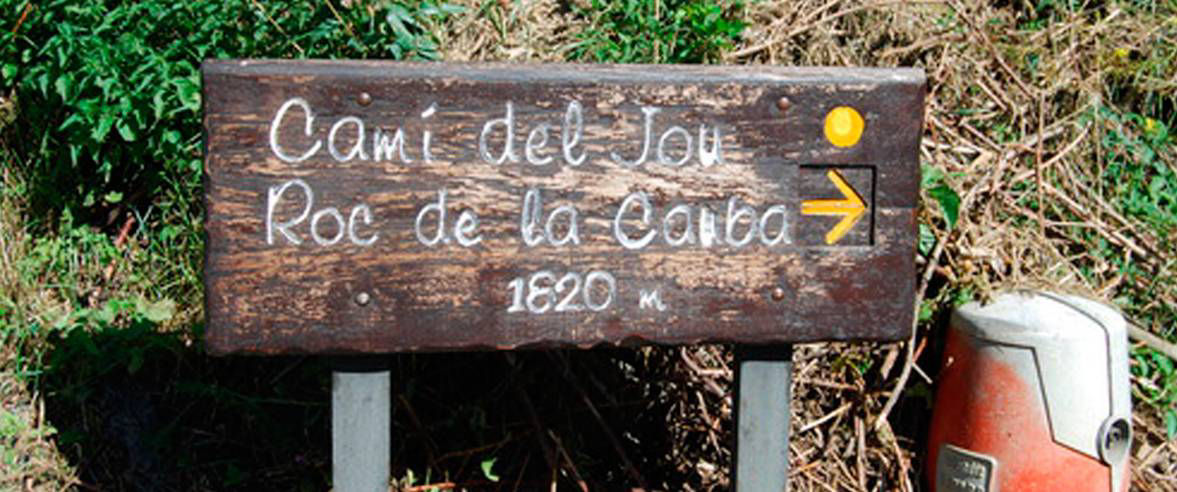 Camí del Jou
Roc de la Cauba
1820 m